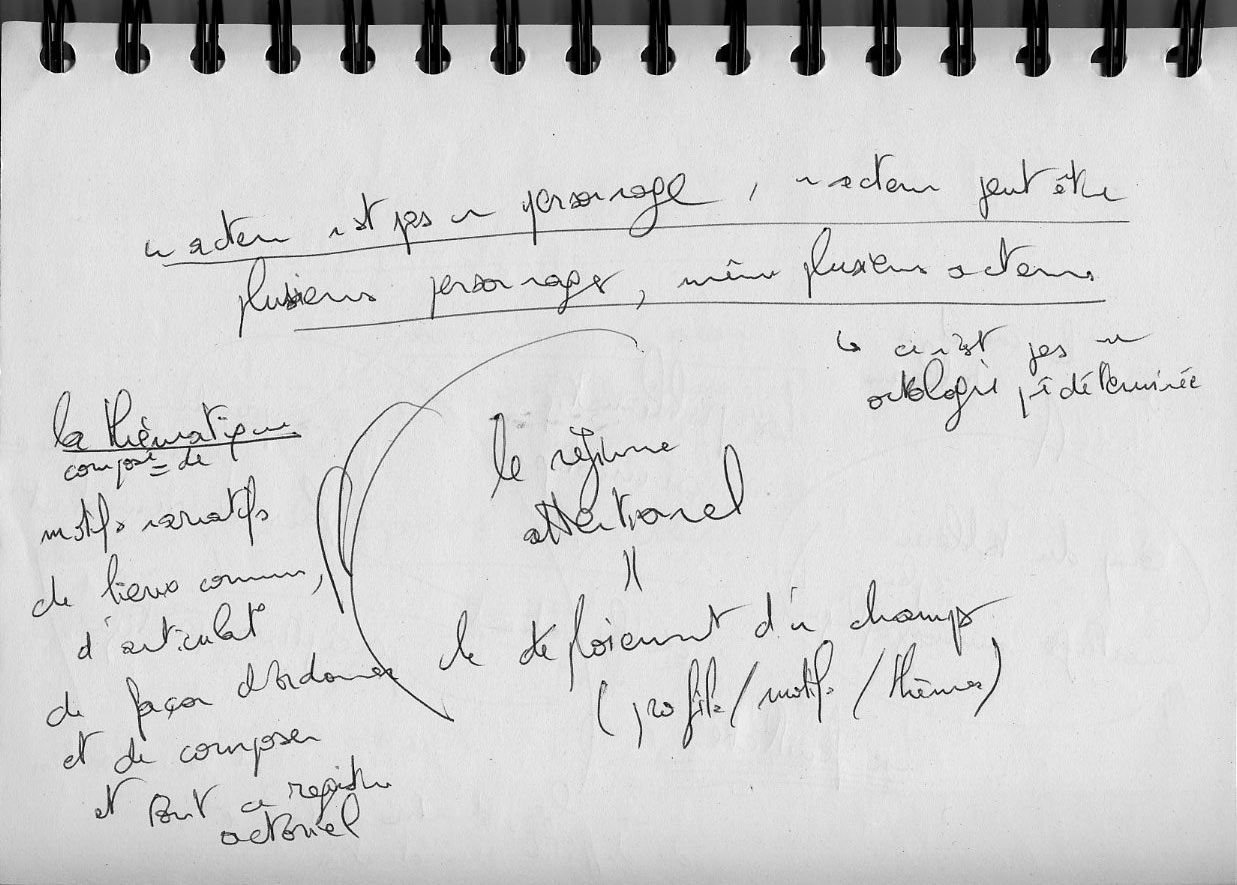 un acteur n'est pas un personnage, un acteur peut être
plusieurs personnages, même plusieurs acteurs
↳ ce n'est pas une
ontologie prédéterminée
la thématique
composée de
motifs narratifs
de lieux communs,
d'articulat°
de façon d'ordonner
et de composer
et tout ce registre
actoriel
le régime
attentionnel
=
le déploiement d'un champs
(profils/motifs/thèmes)